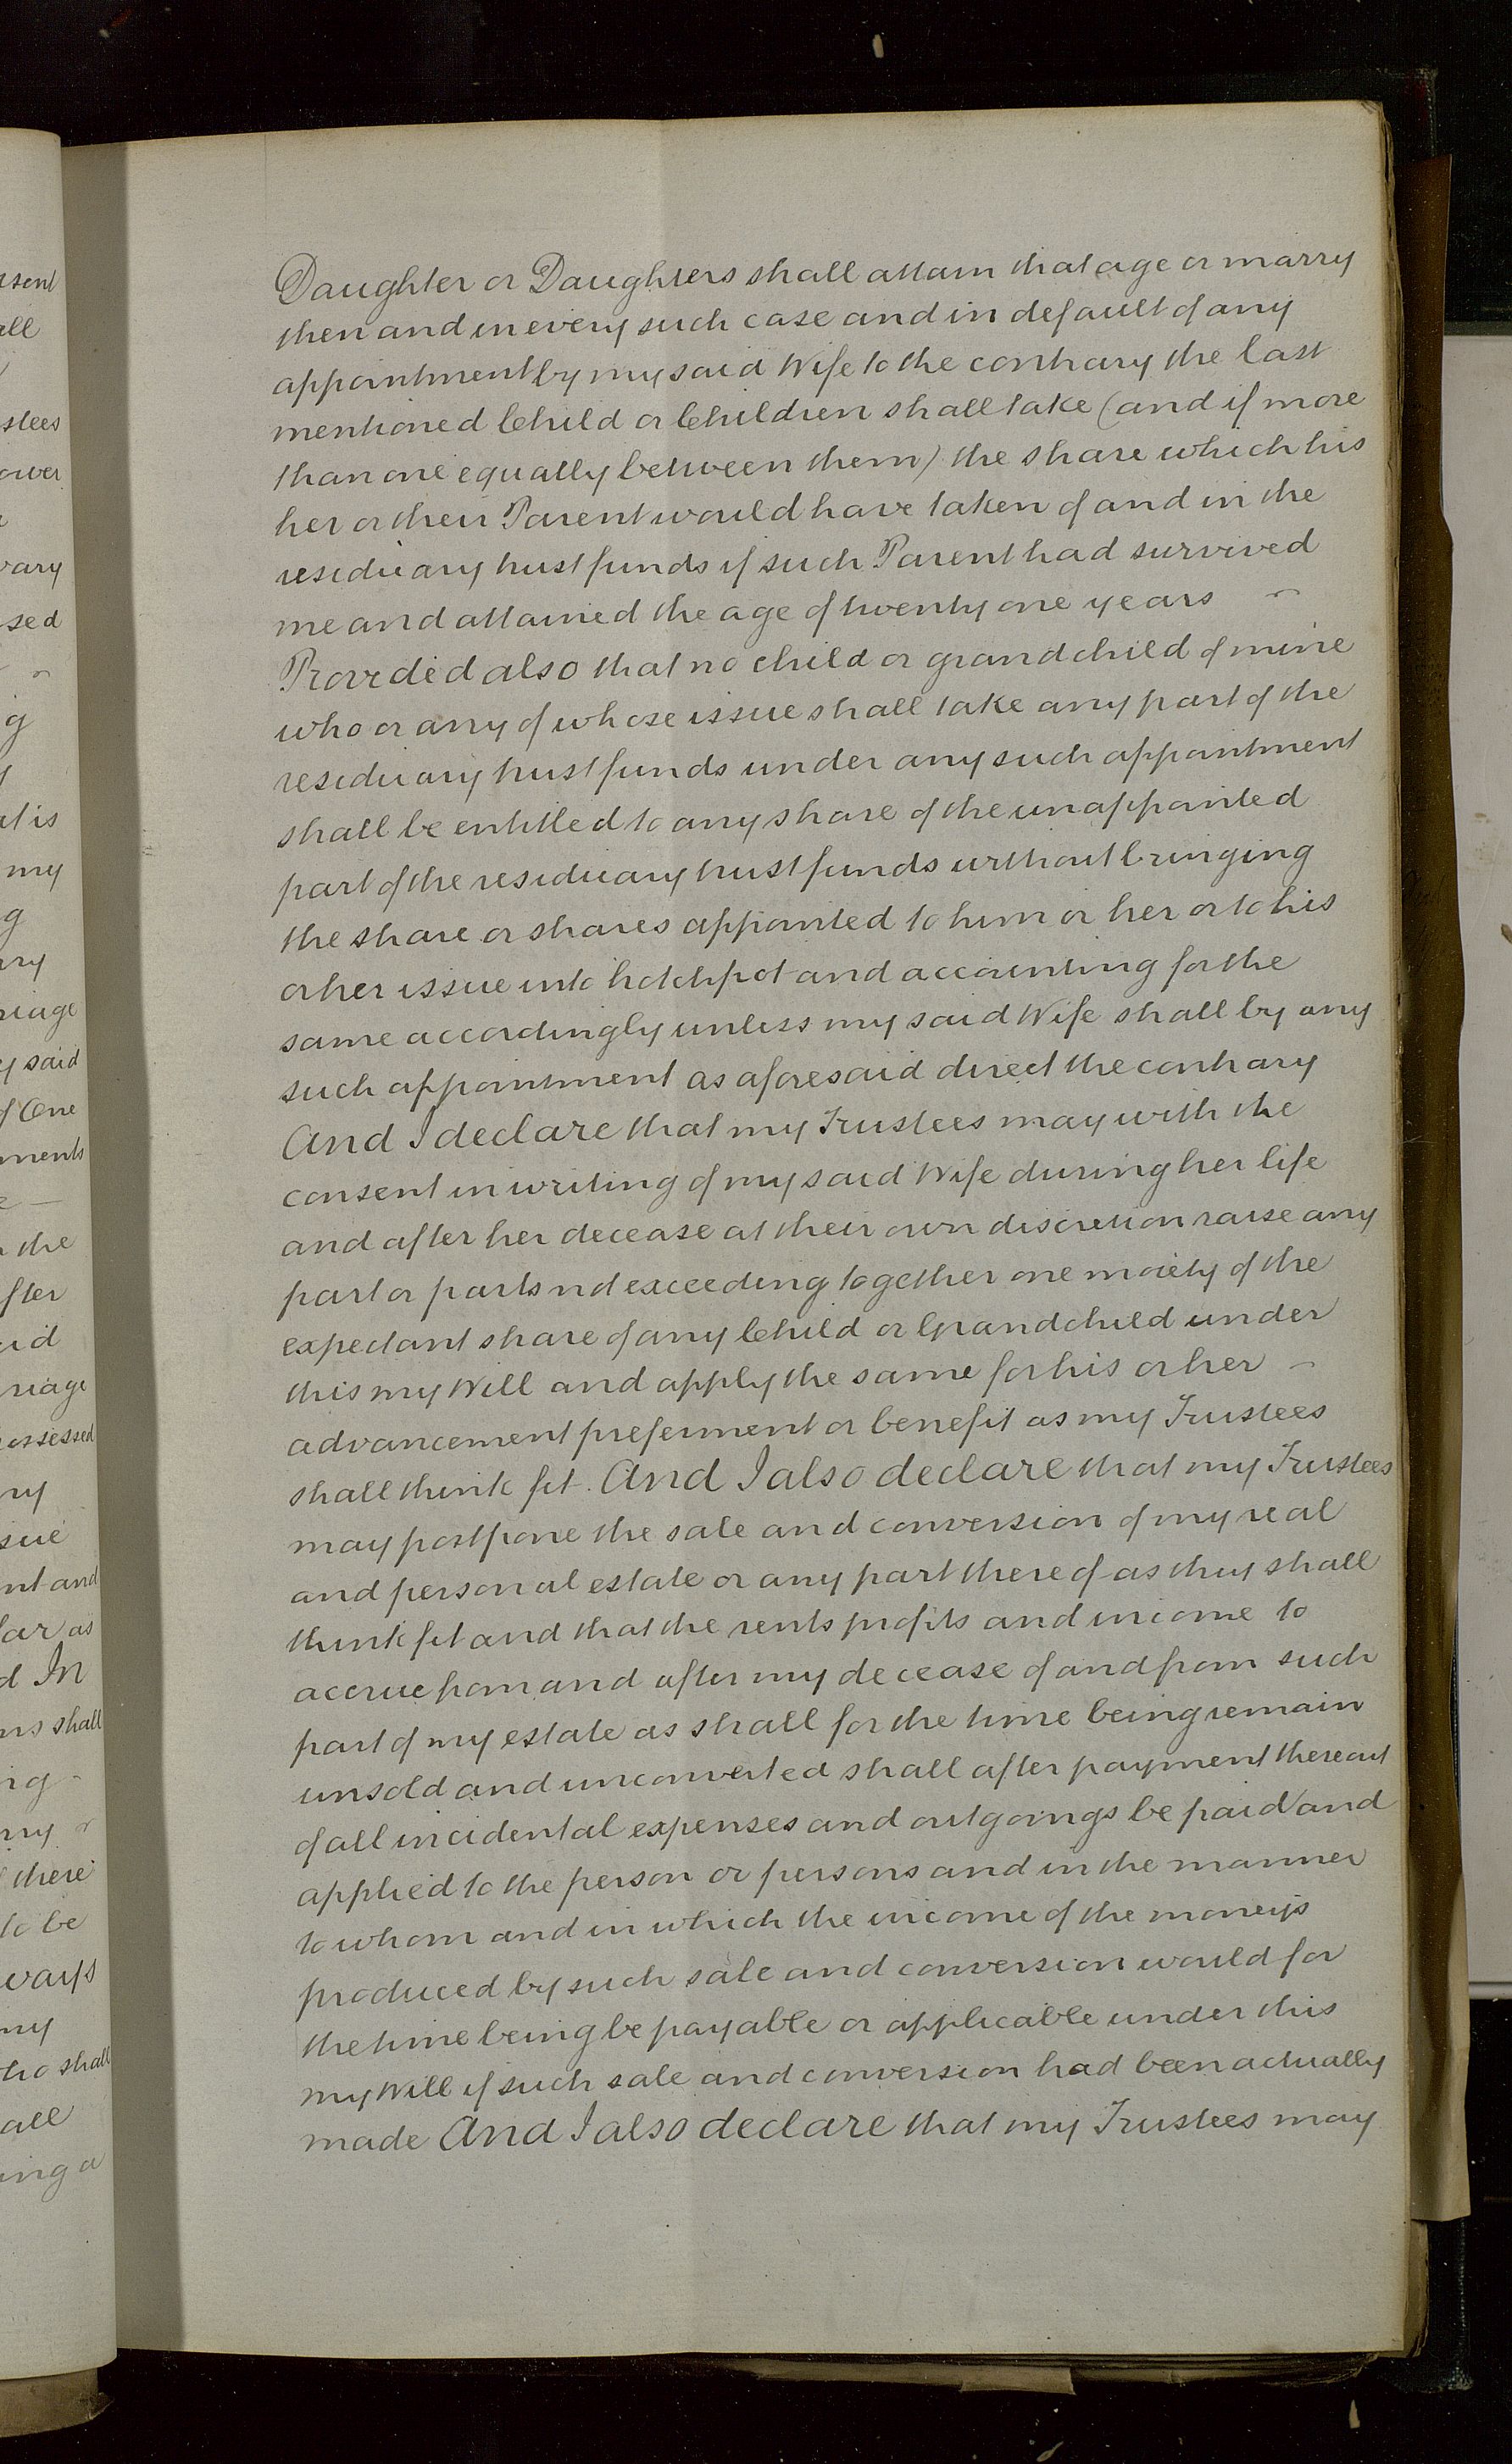 Daughter or Daughters shall attain that age or marry
then and in every such case and in default of any
appointment by my said Wife to the contrary the last
mentioned Child or Children shall take (and if more
than one equally between them) the share which his
her or their Parent would have taken of and in the
residuary trust funds if such Parent had survived
me and attained the age of twenty one years ~
Provided also that no child or grandchild of mine
who or any of whose issue shall take any part of the
residuary trust funds under any such appointment
shall be entitled to any share of the unappointed
part of the residuary trust funds without bringing
the share or shares appointed to him or her or to his
or her issue into hotchpot and accounting for the
same accordingly unless my said Wife shall by any
such appointment as aforesaid direct the contrary
And I declare that my Trustees may with the
consent in writing of my said Wife during her life
and after her decease at their own discretion raise any
part or parts not exceeding together one moiety of the
expectant share of any Child or Grandchild under
this my Will and apply the same for his or her ~
advancement preferment or benefit as my Trustees
shall think fit. And I also declare that my Trustees
may postpone the sale and conversion of my real
and personal estate or any part thereof as they shall
think fit and that the rents profits and income to
accrue from and after my decease of and from such
part of my estate as shall for the time being remain
unsold and unconverted shall after payment thereout
of all incidental expenses and outgoings be paid and
applied to the person or persons and in the manner
to whom and in which the income of the moneys
produced by such sale and conversion would for
the time being be payable or applicable under this
my Will if such sale and conversion had been actually
made And I also declare that my Trustees may